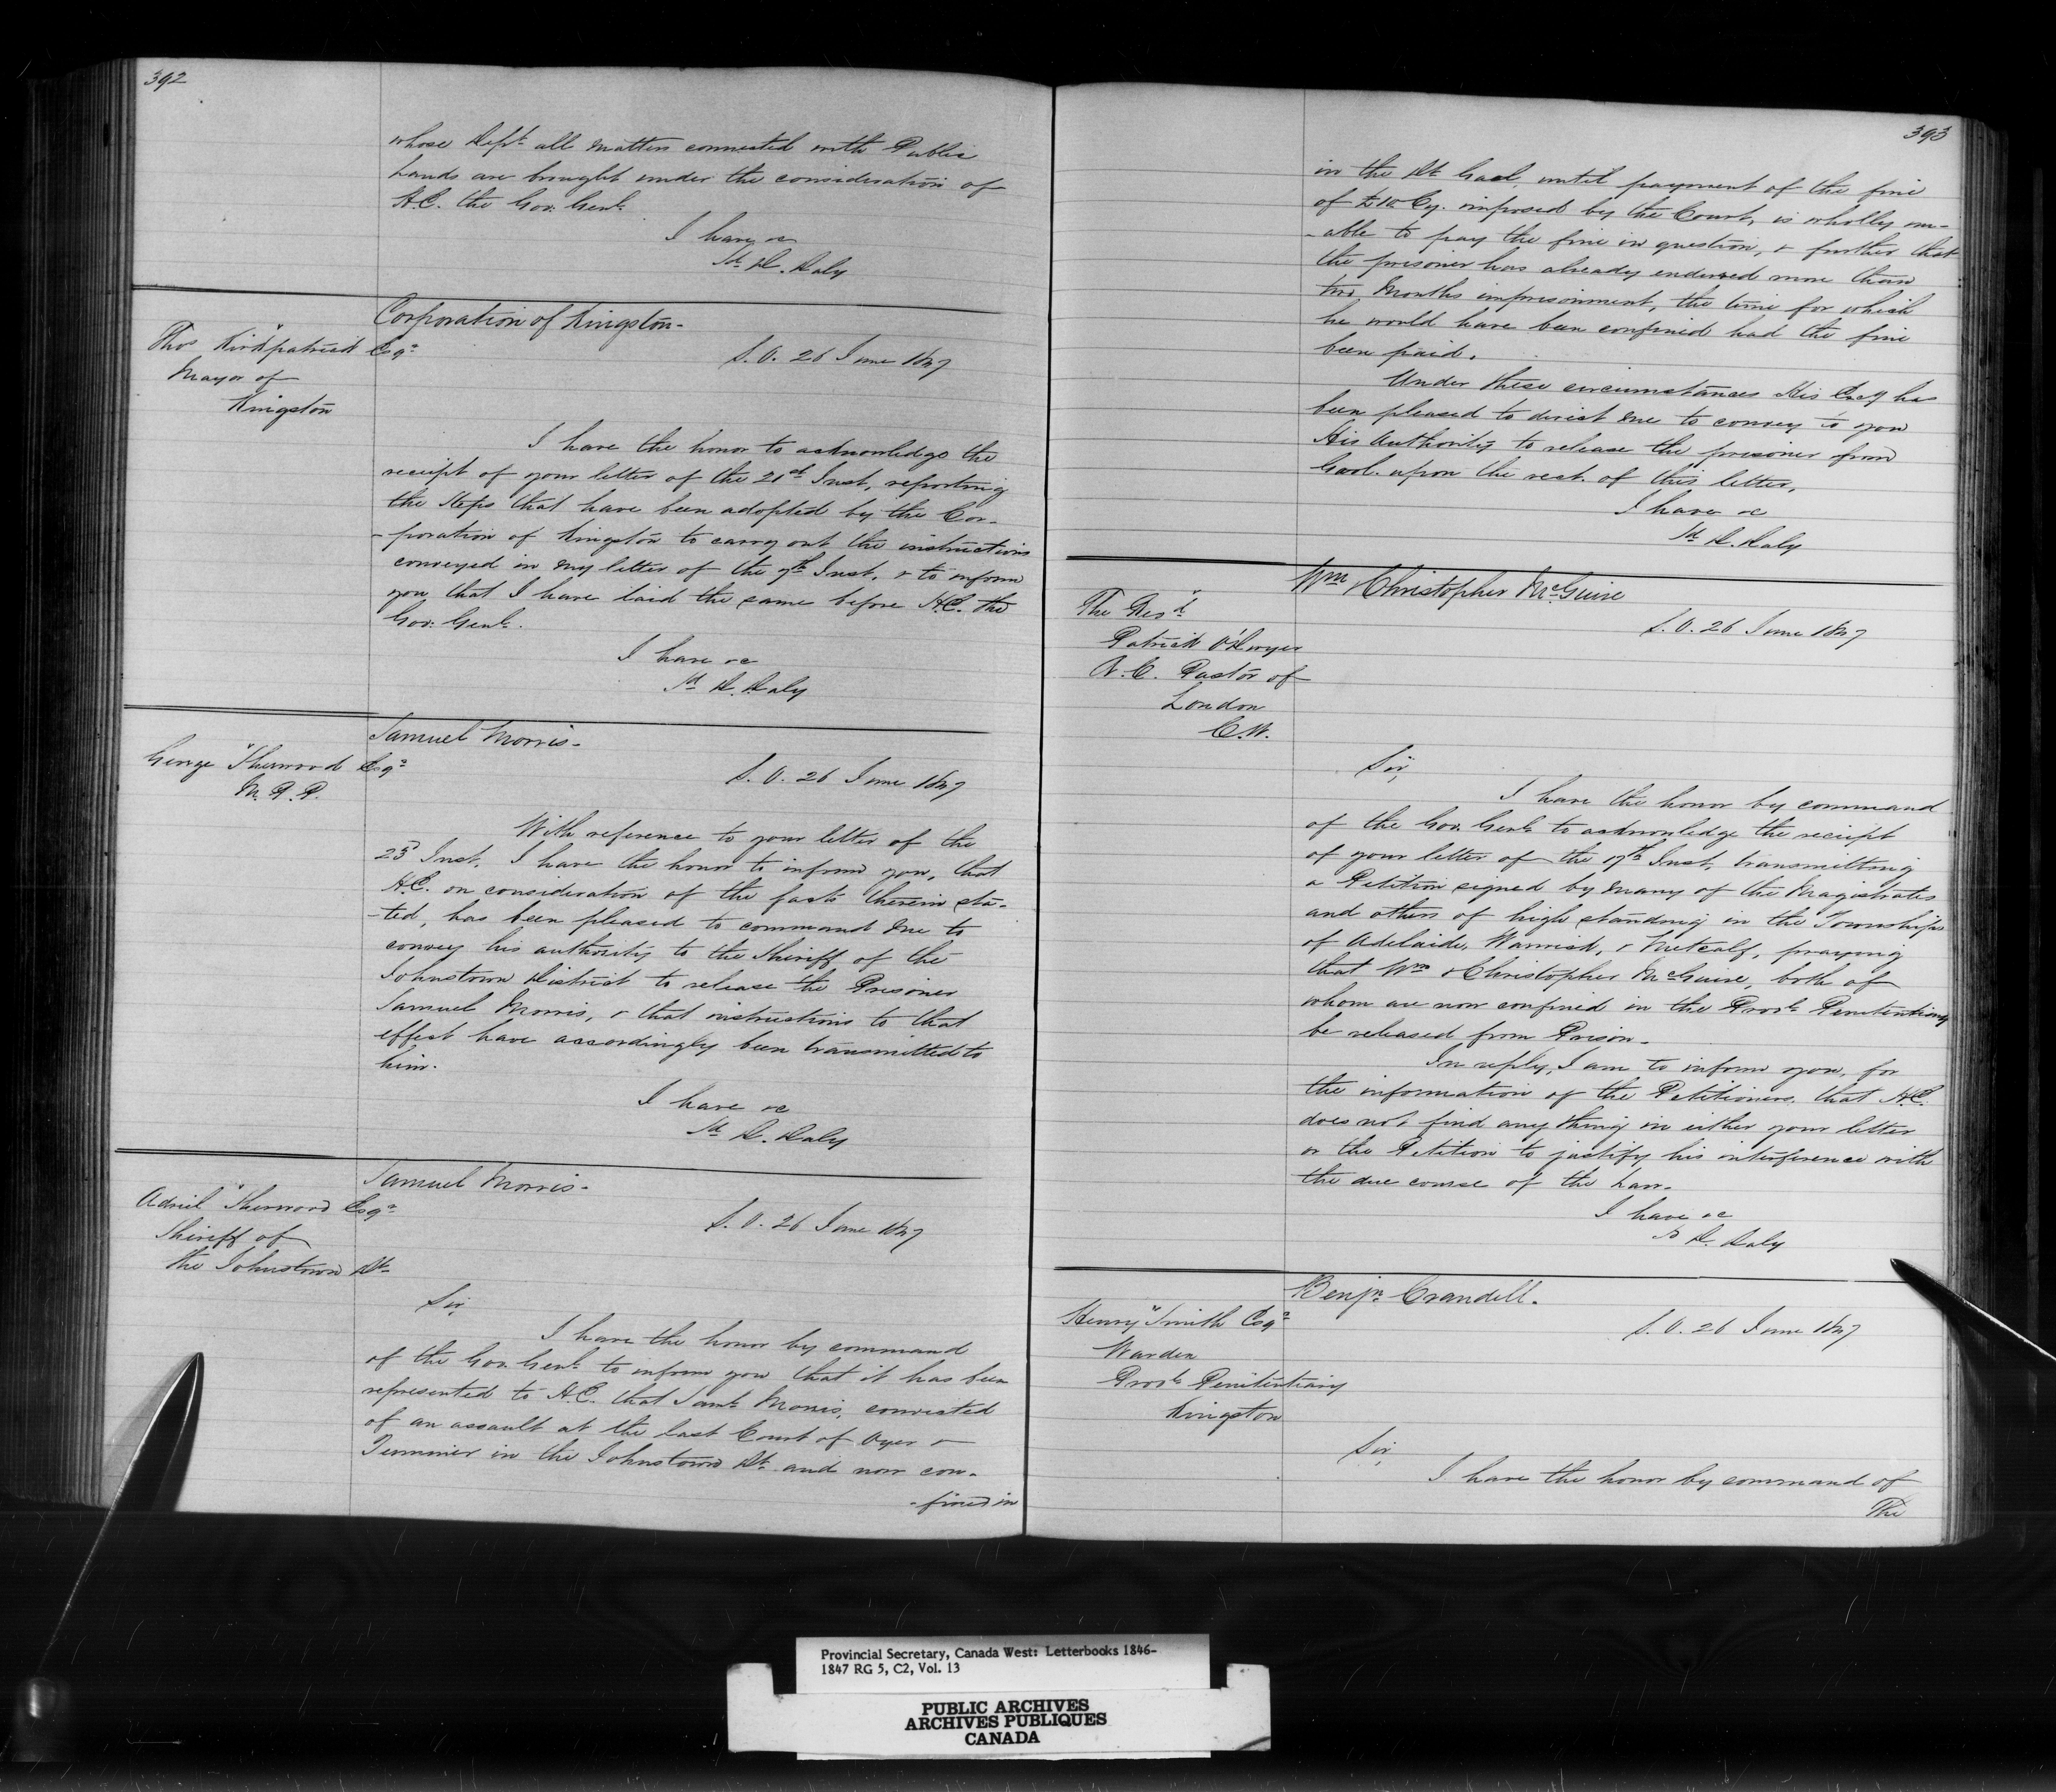 392
whose Dept. all matters connected with Public
Lands are brought under the consideration of
H.E. the Gov. Genl.
I have &c
Sd. D. Daly
Corporation of Kingston-
Thos Kirkpatrick Esqr.
Mayor of
Kingston
S.O. 26 June 1847
I have the honor to acknowledge the
receipt of your letter of the 21st Inst, reporting
the steps that have been adopted by the Cor-
-poration of Kingston to carry out the instructions
conveyed in my letter of the 9th Inst. & to inform
you that I have laid the same before H.E. the
Gov. Genl.
I have &c
Sd D. Daly
Samuel Morris-
George Sherwood Esqr
M.P.P.
S.O. 26 June 1847
With reference to your letter of the
23d Inst. I have the honor to inform you, that
H.E. on consideration of the facts therein sta-
-ted, has been pleased to command me to
convey his authority to the Sheriff of the
Johnstown District to release the Prisoner
Samuel Morris, & that instructions to that
effect have accordingly been transmitted to
him.
I have &c
Sd D. Daly
Samuel Morris-
Adiel Sherwood Esqr
Sheriff of
the Johnstown Dt.
S.O. 26 June 1847
Sir,
I have the honor by command
of the Gov. Genl. to inform you that it has been
represented to H.E. that Saml. Morris, convicted
of an assault at the last Court of Oyer &
Terminer in the Johnstown Dt. and now con-
-fined in
393
in the Dt. Gaol, until payment of the fine
of £10 Cy. imposed by the Court, is wholly un-
-able to pay the fine in question, & further that
the prisoner has already endured more than
two Months imprisonment, the time for which
he would have been confined had the fine
been paid.
Under these circumstances His Excy has
been pleased to direct me to convey to you
His Authority to release the prisoner from
Gaol. upon the rect. of this letter,
I have &c
Sd D. Daly
Wm & Christopher McGuire
The Revd.
Patrick O'Dwyer
R.C. Pastor of
London
C.W.
S.O. 26 June 1847
Sir,
I have the honor by command
of the Gov. Genl. to acknowledge the receipt
of your letter of the 17th Inst, transmitting
a Petition signed by many of the Magistrates
and others of high standing in the Townships
of Adelaide, Warwick, & Metcalf, praying
that Wm & Christopher McGuire, both of
whom are now confined in the Provl. Penitentiary
be released from Prison.
In reply, I am to inform you, for
the information of the Petitioners, that H.E.
does not find any thing in either your letter
or the Petition to justify his interference with
the due course of the Law.
I have &c
Sd D. Daly
Benjn. Crandell.
Henry Smith Esqr
Warden
Provl. Penitentiary
Kingston
S.O. 26 June 1847
Sir,
I have the honor by command of
The
Provincial Secretary, Canada West: Letterbooks 1846-
1847 RG 5, C2, Vol. 13
PUBLIC ARCHIVES
ARCHIVES PUBLIQUES
CANADA